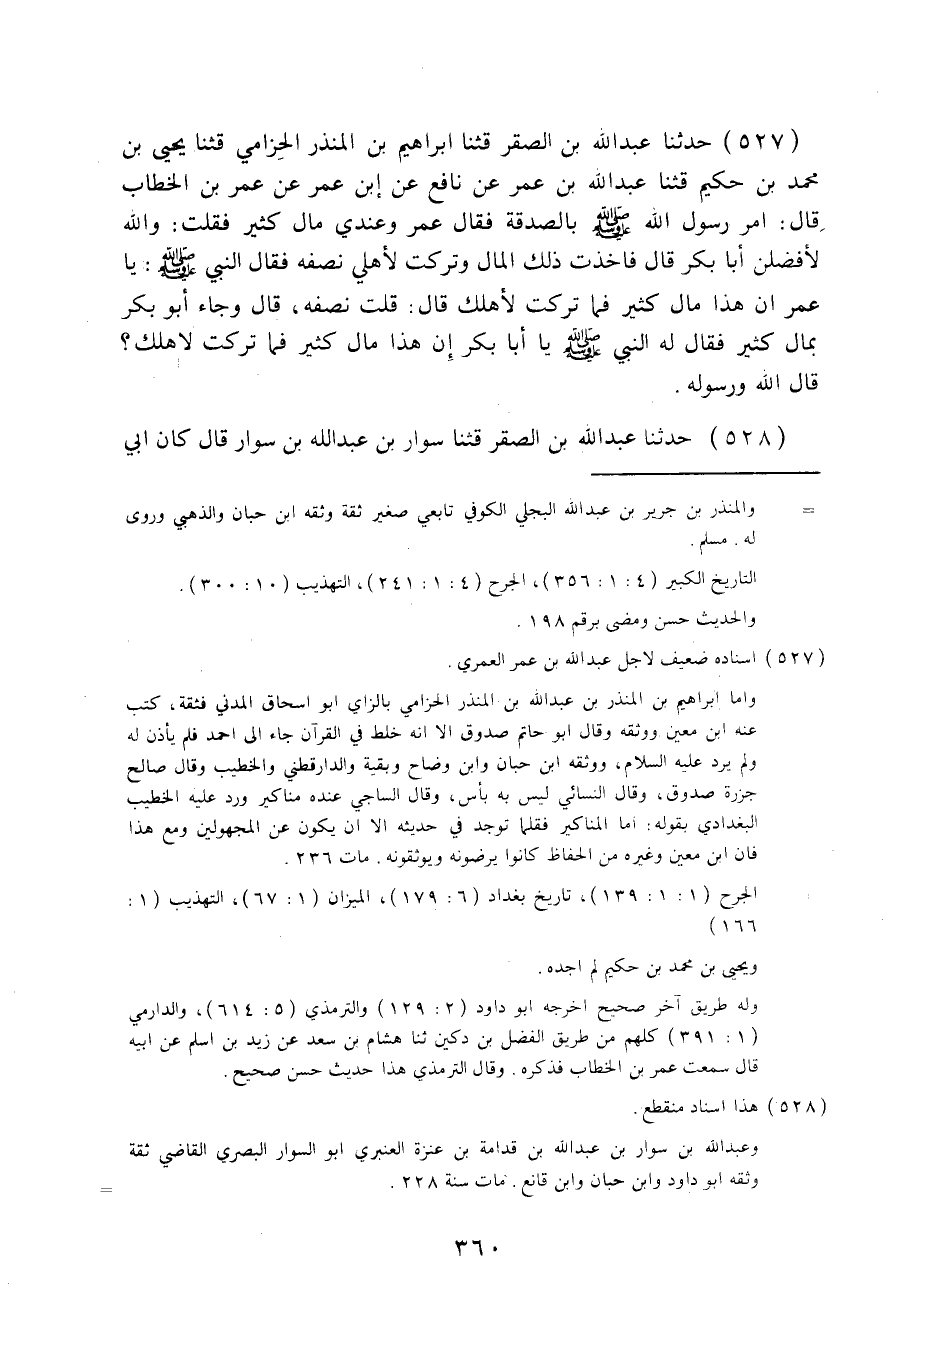 (٥٢٧) حدثنا عبدالله بن الصقر قثنا ابراهيم بن المنذر الحِزامي قثنا يحيى بن
محمد بن حكيم قثنا عبدالله بن عمر عن نافع عن إبن عمر عن عمر بن الخطاب
قال: امر رسول الله ﷺ بالصدقة فقال عمر وعندي مال كثير فقلت: والله
لأفضلن أبا بكر قال فاخذت ذلك المال وتركت لأهلي نصفه فقال النبي ﷺ: يا
عمر ان هذا مال كثير فما تركت لأهلك قال: قلت نصفه، قال وجاء أبو بكر
بمال كثير فقال له النبي ﷺ يا أبا بكر إن هذا مال كثير فما تركت لاهلك؟
قال الله ورسوله.
(٥٢٨) حدثنا عبدالله بن الصقر قثنا سوار بن عبدالله بن سوار قال كان ابي
= والمنذر بن جرير بن عبدالله البجلي الكوفي تابعي صغير ثقة وثقه ابن حبان والذهبي وروى
له. مسلم.
التاريخ الكبير (٤: ١: ٣٥٦)، الجرح (٤: ١: ٢٤١)، التهذيب (١٠: ٣٠٠).
والحديث حسن ومضى برقم ١٩٨.
(٥٢٧) اسناده ضعيف لاجل عبدالله بن عمر العمري.
واما ابراهيم بن المنذر بن عبدالله بن المنذر الحزامي بالزاي ابو اسحاق المدني فثقة، كتب
عنه ابن معين ووثقه وقال ابو حاتم صدوق الا انه خلط في القرآن جاء الى احمد فلم يأذن له
ولم يرد عليه السلام، ووثقه ابن حبان وابن وضاح وبقية والدارقطني والخطيب وقال صالح
جزرة صدوق، وقال النسائي ليس به بأس، وقال الساجي عنده مناكير ورد عليه الخطيب
البغدادي بقوله: اما المناكير فقلما توجد في حديثه الا ان يكون عن المجهولين ومع هذا
فان ابن معين وغيره من الحفاظ كانوا يرضونه ويوثقونه. مات ٢٣٦.
الجرح (١: ١: ١٣٩)، تاريخ بغداد (٦: ١٧٩)، الميزان (١: ٦٧)، التهذيب (١:
١٦٦)
ويحيى بن محمد بن حكيم لم اجده.
وله طريق آخر صحيح اخرجه ابو داود (٢: ١٢٩) والترمذي (٥: ٦١٤)، والدارمي
(١: ٣٩١) كلهم من طريق الفضل بن دكين ثنا هشام بن سعد عن زيد بن اسلم عن ابيه
قال سمعت عمر بن الخطاب فذكره. وقال الترمذي هذا حديث حسن صحيح.
(٥٢٨) هذا اسناد منقطع.
وعبدالله بن سوار بن عبدالله بن قدامة بن عنزة العنبري ابو السوار البصري القاضي ثقة
وثقه ابو داود وابن حبان وابن قانع. مات سنة ٢٢٨. =
٣٦٠